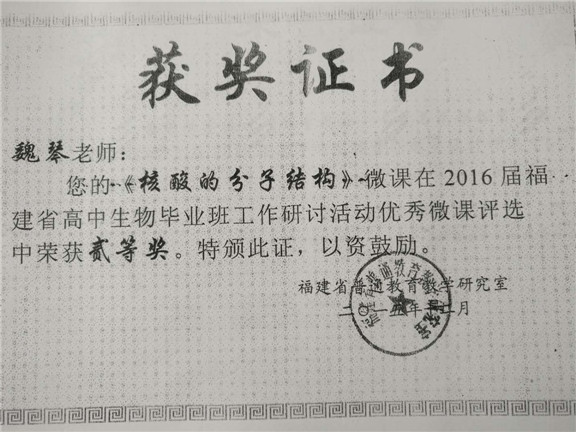 获奖证书
魏琴老师：
您的《核酸的分子结构》微课在2016届福
建省高中生物毕业班工作研讨活动优秀微课评选
中荣获贰等奖。特颁此证，以资鼓励。
福建省普通教育教学研究室
二〇一五年十二月